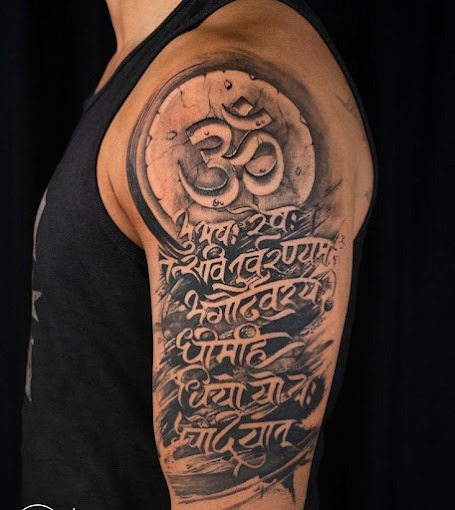 ॐ
भुभवः स्वः
तत्सवितुर्वरेण्यम
भर्गोदेवस्य
धीमहि
धियो योनः
प्रचोदयात्